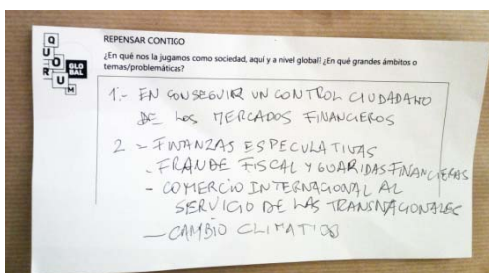 QUORUM
GLOBAL
REPENSAR CONTIGO
¿En qué nos la jugamos como sociedad, aquí y a nivel global? ¿En qué grandes ámbitos o
temas/problemáticas?
1.- EN CONSEGUIR UN CONTROL CIUDADANO
DE LOS MERCADOS FINANCIEROS
2 - FINANZAS ESPECULATIVAS
- FRAUDE FISCAL Y GUARIDAS FINANCIERAS
- COMERCIO INTERNACIONAL AL
SERVICIO DE LAS TRANSNACIONALES
- CAMBIO CLIMATICO